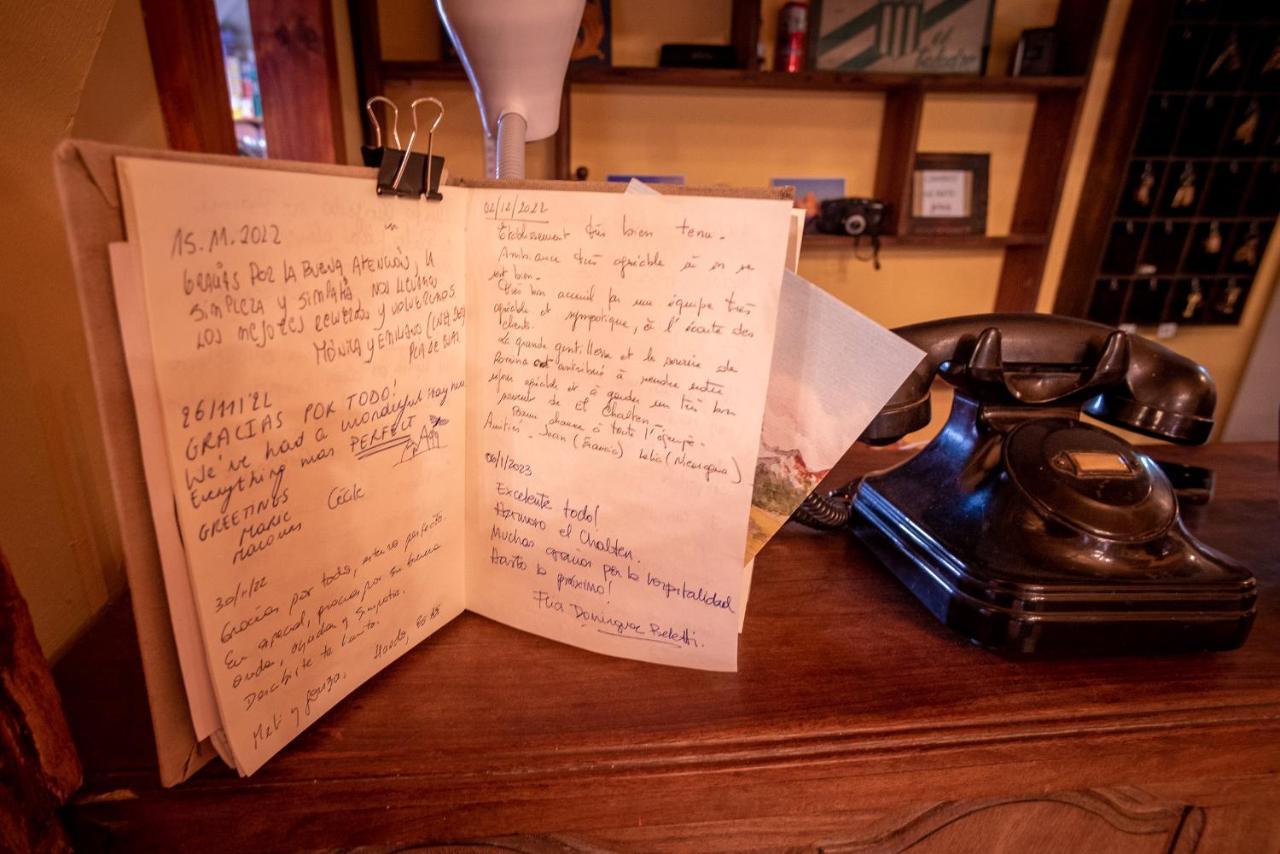 15.11.2022
GRACIAS POR LA BUENA ATENCIÓN, LA
SIMPLEZA Y SIMPATÍA, NOS LLEVAMOS
LOS MEJORES RECUERDOS Y VOLVEREMOS
MÓNICA Y EMILIANO
26/11/22
GRACIAS POR TODO!
We've had a wonderful stay here
Everything was PERFECT
GREETINGS
MARIE Cécile
30/11/22
Gracias por todo, estuvo perfecto.
En especial, gracias por su buena
onda, ayuda y simpatía.
Meli y
02/12/2022
Etablissement très bien tenu.
Ambiance très agréable où on se
sent bien.
Très bon accueil par une équipe très
agréable et sympatique, à l'écoute des
clients.
La grande gentillesse et le sourire de
Romina ont contribué à rendre notre
séjour agréable et à garder un très bon
souvenir de el Chalten.
Bonne chance à toute l'équipe.
Amitiés. Jean (Francia) (Nicaragua)
06/1/2023
Excelente todo!
Hermoso el Chalten.
Muchas gracias por la hospitalidad
Hasta la próxima!